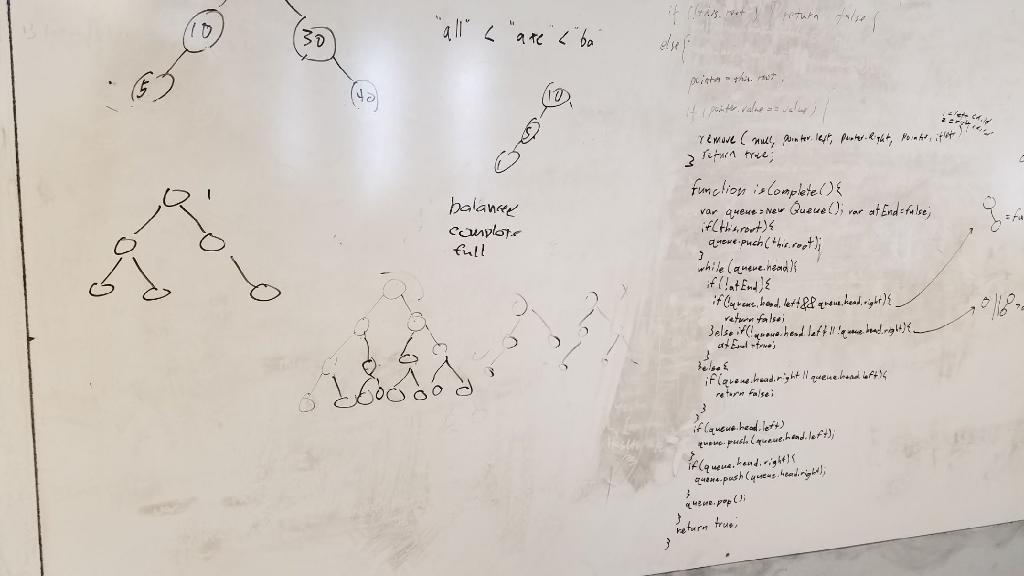 10
30
5
40
"all" < "are" < "ba"
10
5
1
balance
complete
full
if (!this.root) { return false {
else {
pointer = this.root;
if (pointer.value == value) {
remove (null, pointer.left, pointer.Right, pointer,
} return true;
function isComplete(){
var queue=New Queue(); var atEnd=false;
if(this.root){
queue.push(this.root);
}
while(queue.head){
if(!atEnd){
if(!queue.head.left&&queue.head.right){
return false;
}else if(!queue.head.left||!queue.head.right){
atEnd=true;
}
}else{
if(queue.head.right||queue.head.left){
return false;
}
}
if(queue.head.left)
queue.push(queue.head.left);
}
if(queue.head.right){
queue.push(queue.head.right);
}
queue.pop();
}
return true;
}